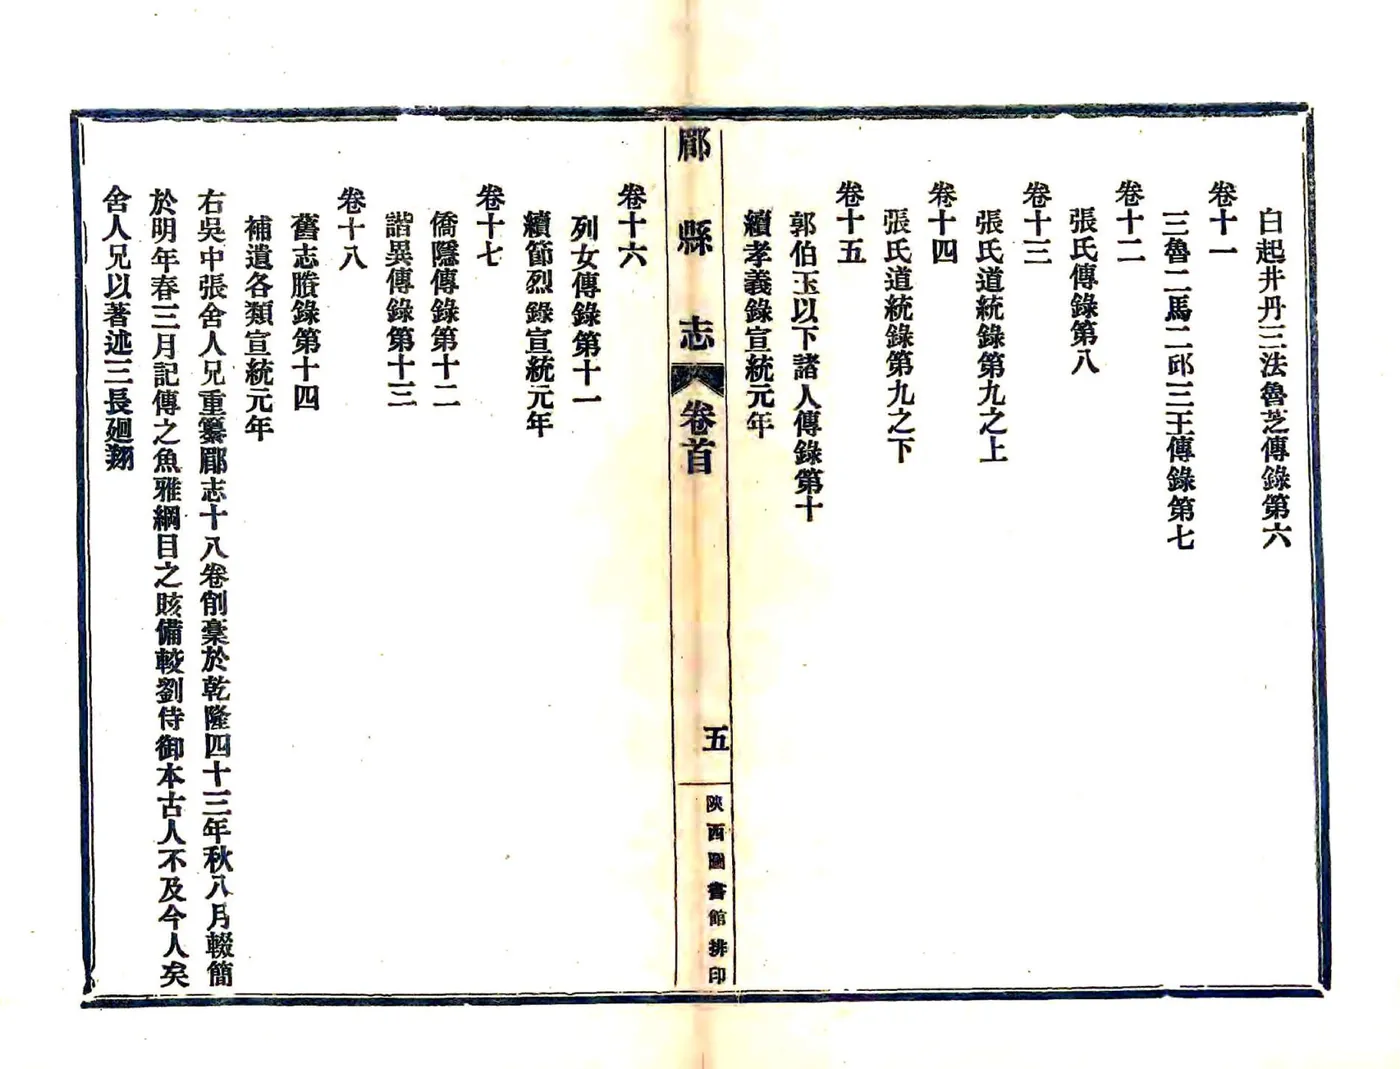 白起井丹三法魯芝傳錄第六
卷十一
三魯二馬二邱三王傳錄第七
卷十二
張氏傳錄第八
卷十三
張氏道統錄第九之上
卷十四
張氏道統錄第九之下
卷十五
郭伯玉以下諸人傳錄第十
續孝義錄宣統元年
郿縣志
卷首
五
陝西圖書館排印
卷十六
列女傳錄第十一
續節烈錄宣統元年
卷十七
僑隱傳錄第十二
諧異傳錄第十三
卷十八
舊志賸錄第十四
補遺各類宣統元年
右吳中張舍人兄重纂郿志十八卷創稾於乾隆四十三年秋八月輟簡
於明年春三月記傳之魚雅綱目之賅備較劉侍御本古人不及今人矣
舍人兄以著述三長廻翔